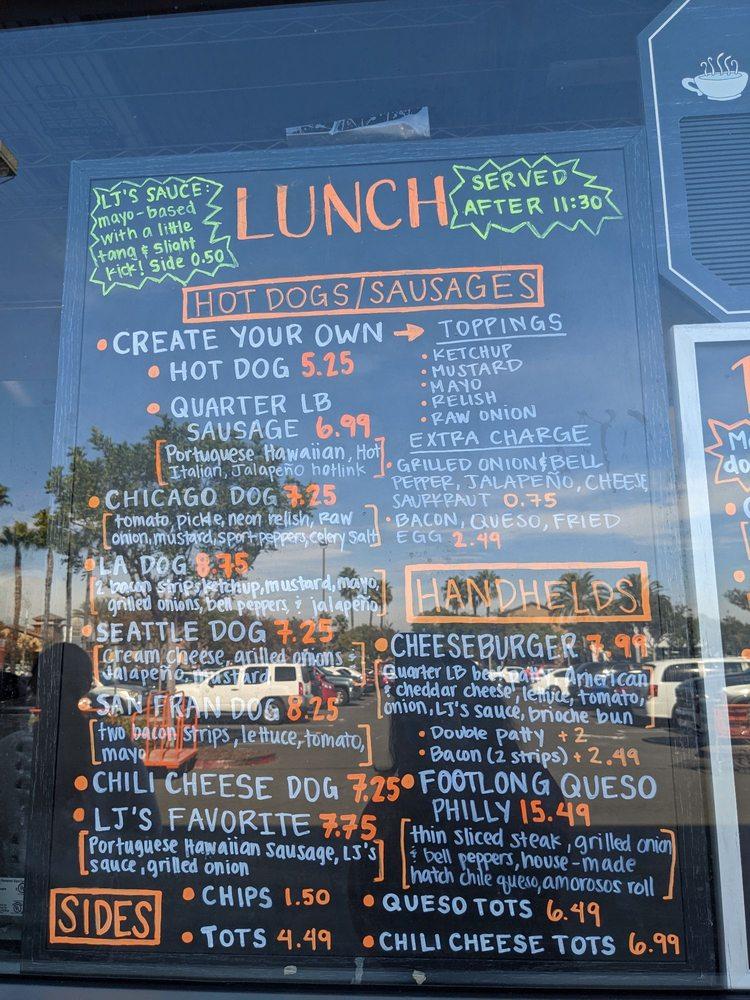 LJ'S SAUCE:
mayo-based
with a little
tang & slight
kick! Side 0.50
LUNCH
SERVED
AFTER 11:30
HOT DOGS/SAUSAGES
• CREATE YOUR OWN →
• HOT DOG 5.25
• QUARTER LB
SAUSAGE 6.99
[Portuguese Hawaiian, Hot
Italian, Jalapeño hotlink]
TOPPINGS
• KETCHUP
• MUSTARD
• MAYO
• RELISH
• RAW ONION
EXTRA CHARGE
• GRILLED ONION & BELL
PEPPER, JALAPEÑO, CHEESE,
SAURKRAUT 0.75
• BACON, QUESO, FRIED
EGG 2.49
• CHICAGO DOG 7.25
[tomato, pickle, neon relish, raw
onion, mustard, sport peppers, celery salt]
• LA DOG 8.75
[2 bacon strips, ketchup, mustard, mayo,
grilled onions, bell peppers, & jalapeño]
• SEATTLE DOG 7.25
[cream cheese, grilled onions
jalapeño, mustard]
• SAN FRAN DOG 8.25
[two bacon strips, lettuce, tomato,
mayo]
• CHILI CHEESE DOG 7.25
• LJ'S FAVORITE 7.75
[Portuguese Hawaiian Sausage, LJ's
sauce, grilled onion]
HANDHELDS
• CHEESEBURGER 7.99
[Quarter LB patty, American
& cheddar cheese, lettuce, tomato,
onion, LJ's sauce, brioche bun]
• Double patty +2
• Bacon (2 strips) +2.49
• FOOTLONG QUESO
PHILLY 15.49
[thin sliced steak, grilled onion
& bell peppers, house-made
hatch chile queso, amorosos roll]
SIDES
• CHIPS 1.50
• TOTS 4.49
• QUESO TOTS 6.49
• CHILI CHEESE TOTS 6.99